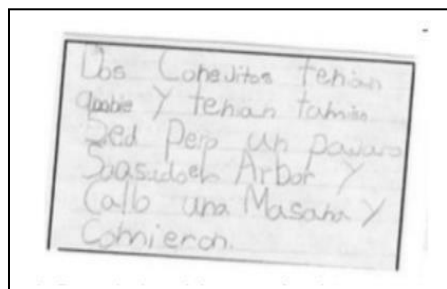 Dos Conejitos tenian
ambie Y tenian tamien
Sed Pero un pawaro
Arbor Y
Callo una Masana Y
Comieron.